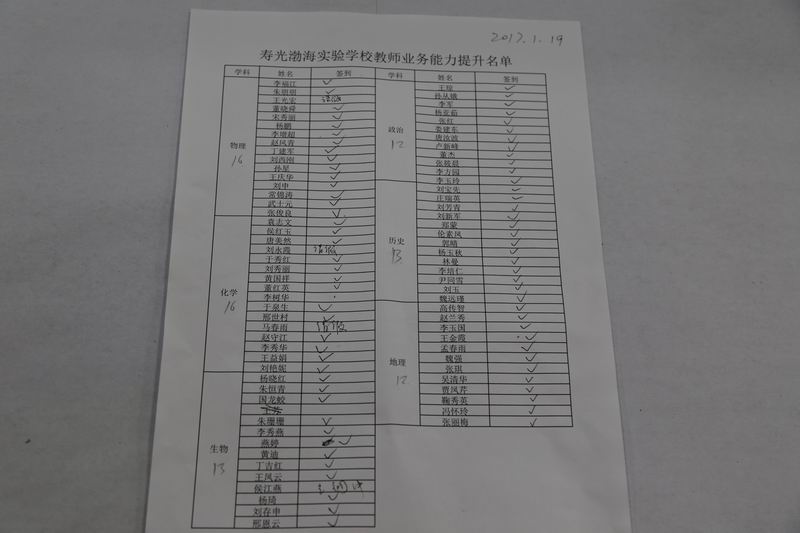 2017.1.19
寿光渤海实验学校教师业务能力提升名单
学科 姓名 签到
物理
16
李福江
朱琪琪
王光宏 请假
董晓舜
宋秀丽
杨鹏
李增超
赵凤青
丁建军
刘西刚
孙星
王庆华
刘申
常锦涛
武士元
张俊良
化学
16
袁志文
侯红玉
唐美然
刘永霞 请假
于秀红
刘秀丽
黄国祥
董红英
李树华
于泉生
邢世村
马春雨 请假
赵守江
李秀华
王益娟
刘艳妮
生物
13
杨晓红
朱恒青
国龙蛟
朱珊珊
李秀燕
燕婷
黄迪
丁吉红
王凤云
侯江燕
杨琦
刘存申
邢恩云
学科 姓名 签到
政治
12
王琼
孙从娥
李军
杨亚茹
张红
娄建东
唐汝波
卢新峰
董杰
张筱晨
李方园
李玉玲
历史
13
刘宝先
庄瑞英
刘芳青
刘新军
郑蒙
伦素凤
郭晴
杨玉秋
林曼
李培仁
尹同雪
刘玉
魏远瑾
地理
12
高传智
赵兰秀
李玉国
王金霞
孟春雨
魏强
张琪
吴清华
贾凤芹
鞠秀英
冯怀玲
张丽梅